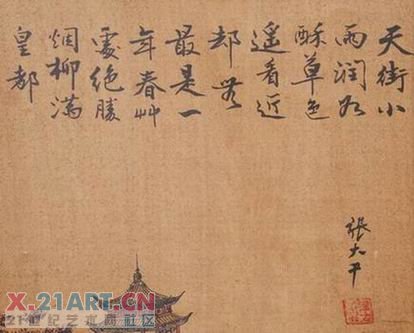 天街小
雨润如
酥草色
遥看近
却無
最是一
年春艸
處絶勝
烟柳满
皇都
張大千
X.21ART.CN
21世纪艺术网社区